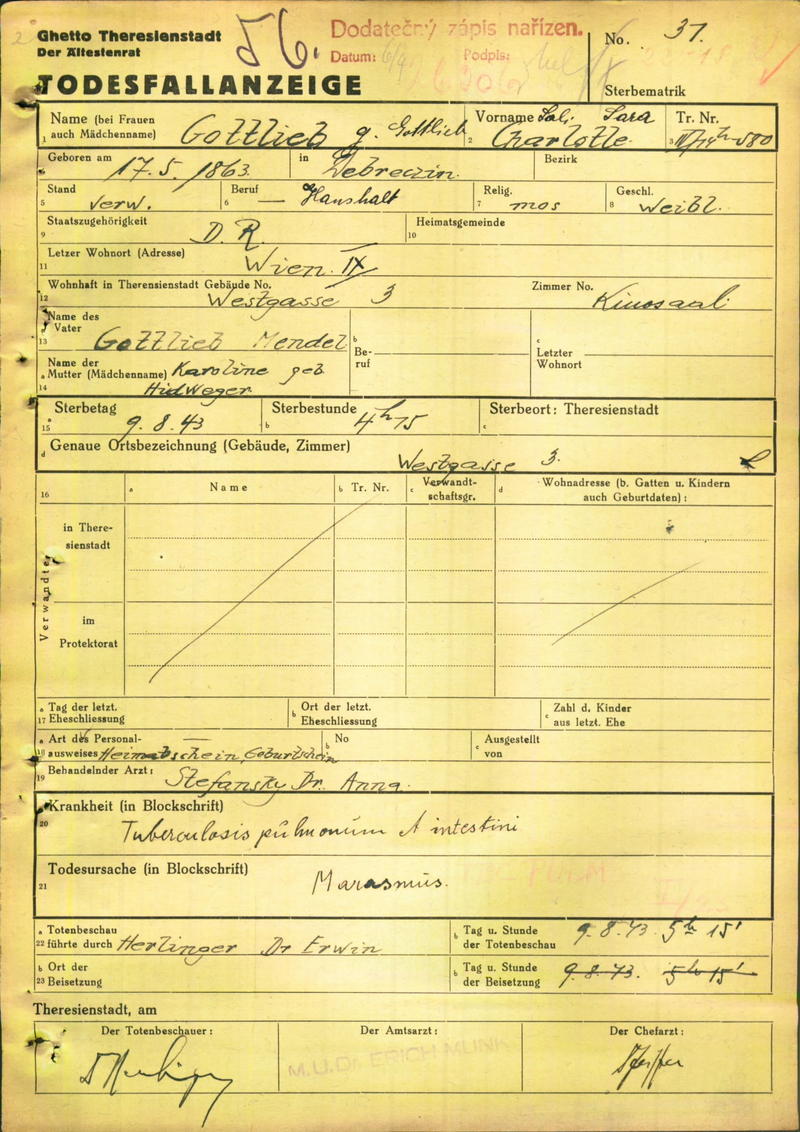 Ghetto Theresienstadt
Der Ältestenrat
56.
Dodatečný zápis nařízen.
Datum: Podpis:
No. 37.
TODESFALLANZEIGE
Sterbematrik
Name (bei Frauen auch Mädchenname) Gottlieb g. Gottlieb
Vorname Sal. Sara Charlotte
Tr. Nr. 580
1 2 3
Geboren am 17.5.1863 in Debreczin. Bezirk
Stand verw. Beruf — Haushalt Relig. mos Geschl. weibl.
5 6 7 8
Staatszugehörigkeit D.R. Heimatsgemeinde
9 10
Letzer Wohnort (Adresse) Wien IX
11
Wohnhaft in Therensienstadt Gebäude No. Westgasse 3 Zimmer No. Kinosaal.
12
Name des Vater Gottlieb Mendel
13
b Beruf
c Letzter Wohnort
Name der Mutter (Mädchenname) Karoline geb
14
Sterbetag 9.8.43 Sterbestunde 4h 15 Sterbeort: Theresienstadt
15 b c
d Genaue Ortsbezeichnung (Gebäude, Zimmer) Westgasse 3.
16 a Name b Tr. Nr. c Verwandtschaftsgr. d Wohnadresse (b. Gatten u. Kindern auch Geburtdaten):
Verwandte
in Theresienstadt
im Protektorat
a Tag der letzt. Eheschliessung b Ort der letzt. Eheschliessung c Zahl d. Kinder aus letzt. Ehe
17
a Art des Personalausweises Heimatschein, Geburtschein b No c Ausgestellt von
Behandelnder Arzt: Stefansky Dr. Anna.
19
Krankheit (in Blockschrift)
20
Tuberculosis pulmonum et intestini
Todesursache (in Blockschrift)
21
Marasmus.
a Totenbeschau führte durch Herlinger Dr Erwin b Tag u. Stunde der Totenbeschau 9.8.43. 5h 15'
22
b Ort der Beisetzung b Tag u. Stunde der Beisetzung 9.8.43. 5h 15'
23
Theresienstadt, am
Der Totenbeschauer: Der Amtsarzt: Der Chefarzt:
M.U.Dr ERICH MUNK